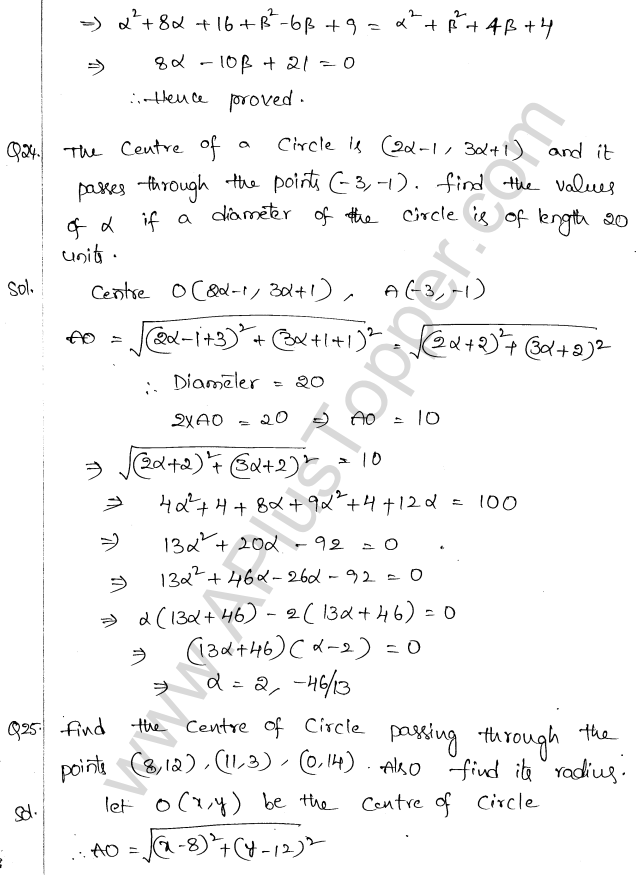 ⇒ α²+8α+16+β²-6β+9 = α²+β²+4β+4
⇒ 8α-10β+21=0
∴ Hence proved.
Q24. The Centre of a Circle is (2α-1, 3α+1) and it
passes through the points (-3,-1). find the values
of α if a diameter of the circle is of length 20
units.
Sol. Centre O(2α-1, 3α+1), A(-3,-1)
AO = √(2α-1+3)²+(3α+1+1)² = √(2α+2)²+(3α+2)²
∴ Diameter = 20
2×AO = 20 ⇒ AO = 10
⇒ √(2α+2)²+(3α+2)² = 10
⇒ 4α²+4+8α+9α²+4+12α = 100
⇒ 13α²+20α-92 = 0
⇒ 13α²+46α-26α-92 = 0
⇒ α(13α+46)-2(13α+46)=0
⇒ (13α+46)(α-2)=0
⇒ α = 2, -46/13
Q25. find the Centre of Circle passing through the
points (8,12), (11,3), (0,14). Also find its radius.
Sol. let O(x,y) be the centre of circle
∴ AO = √(x-8)²+(y-12)²
www.APlusTopper.com